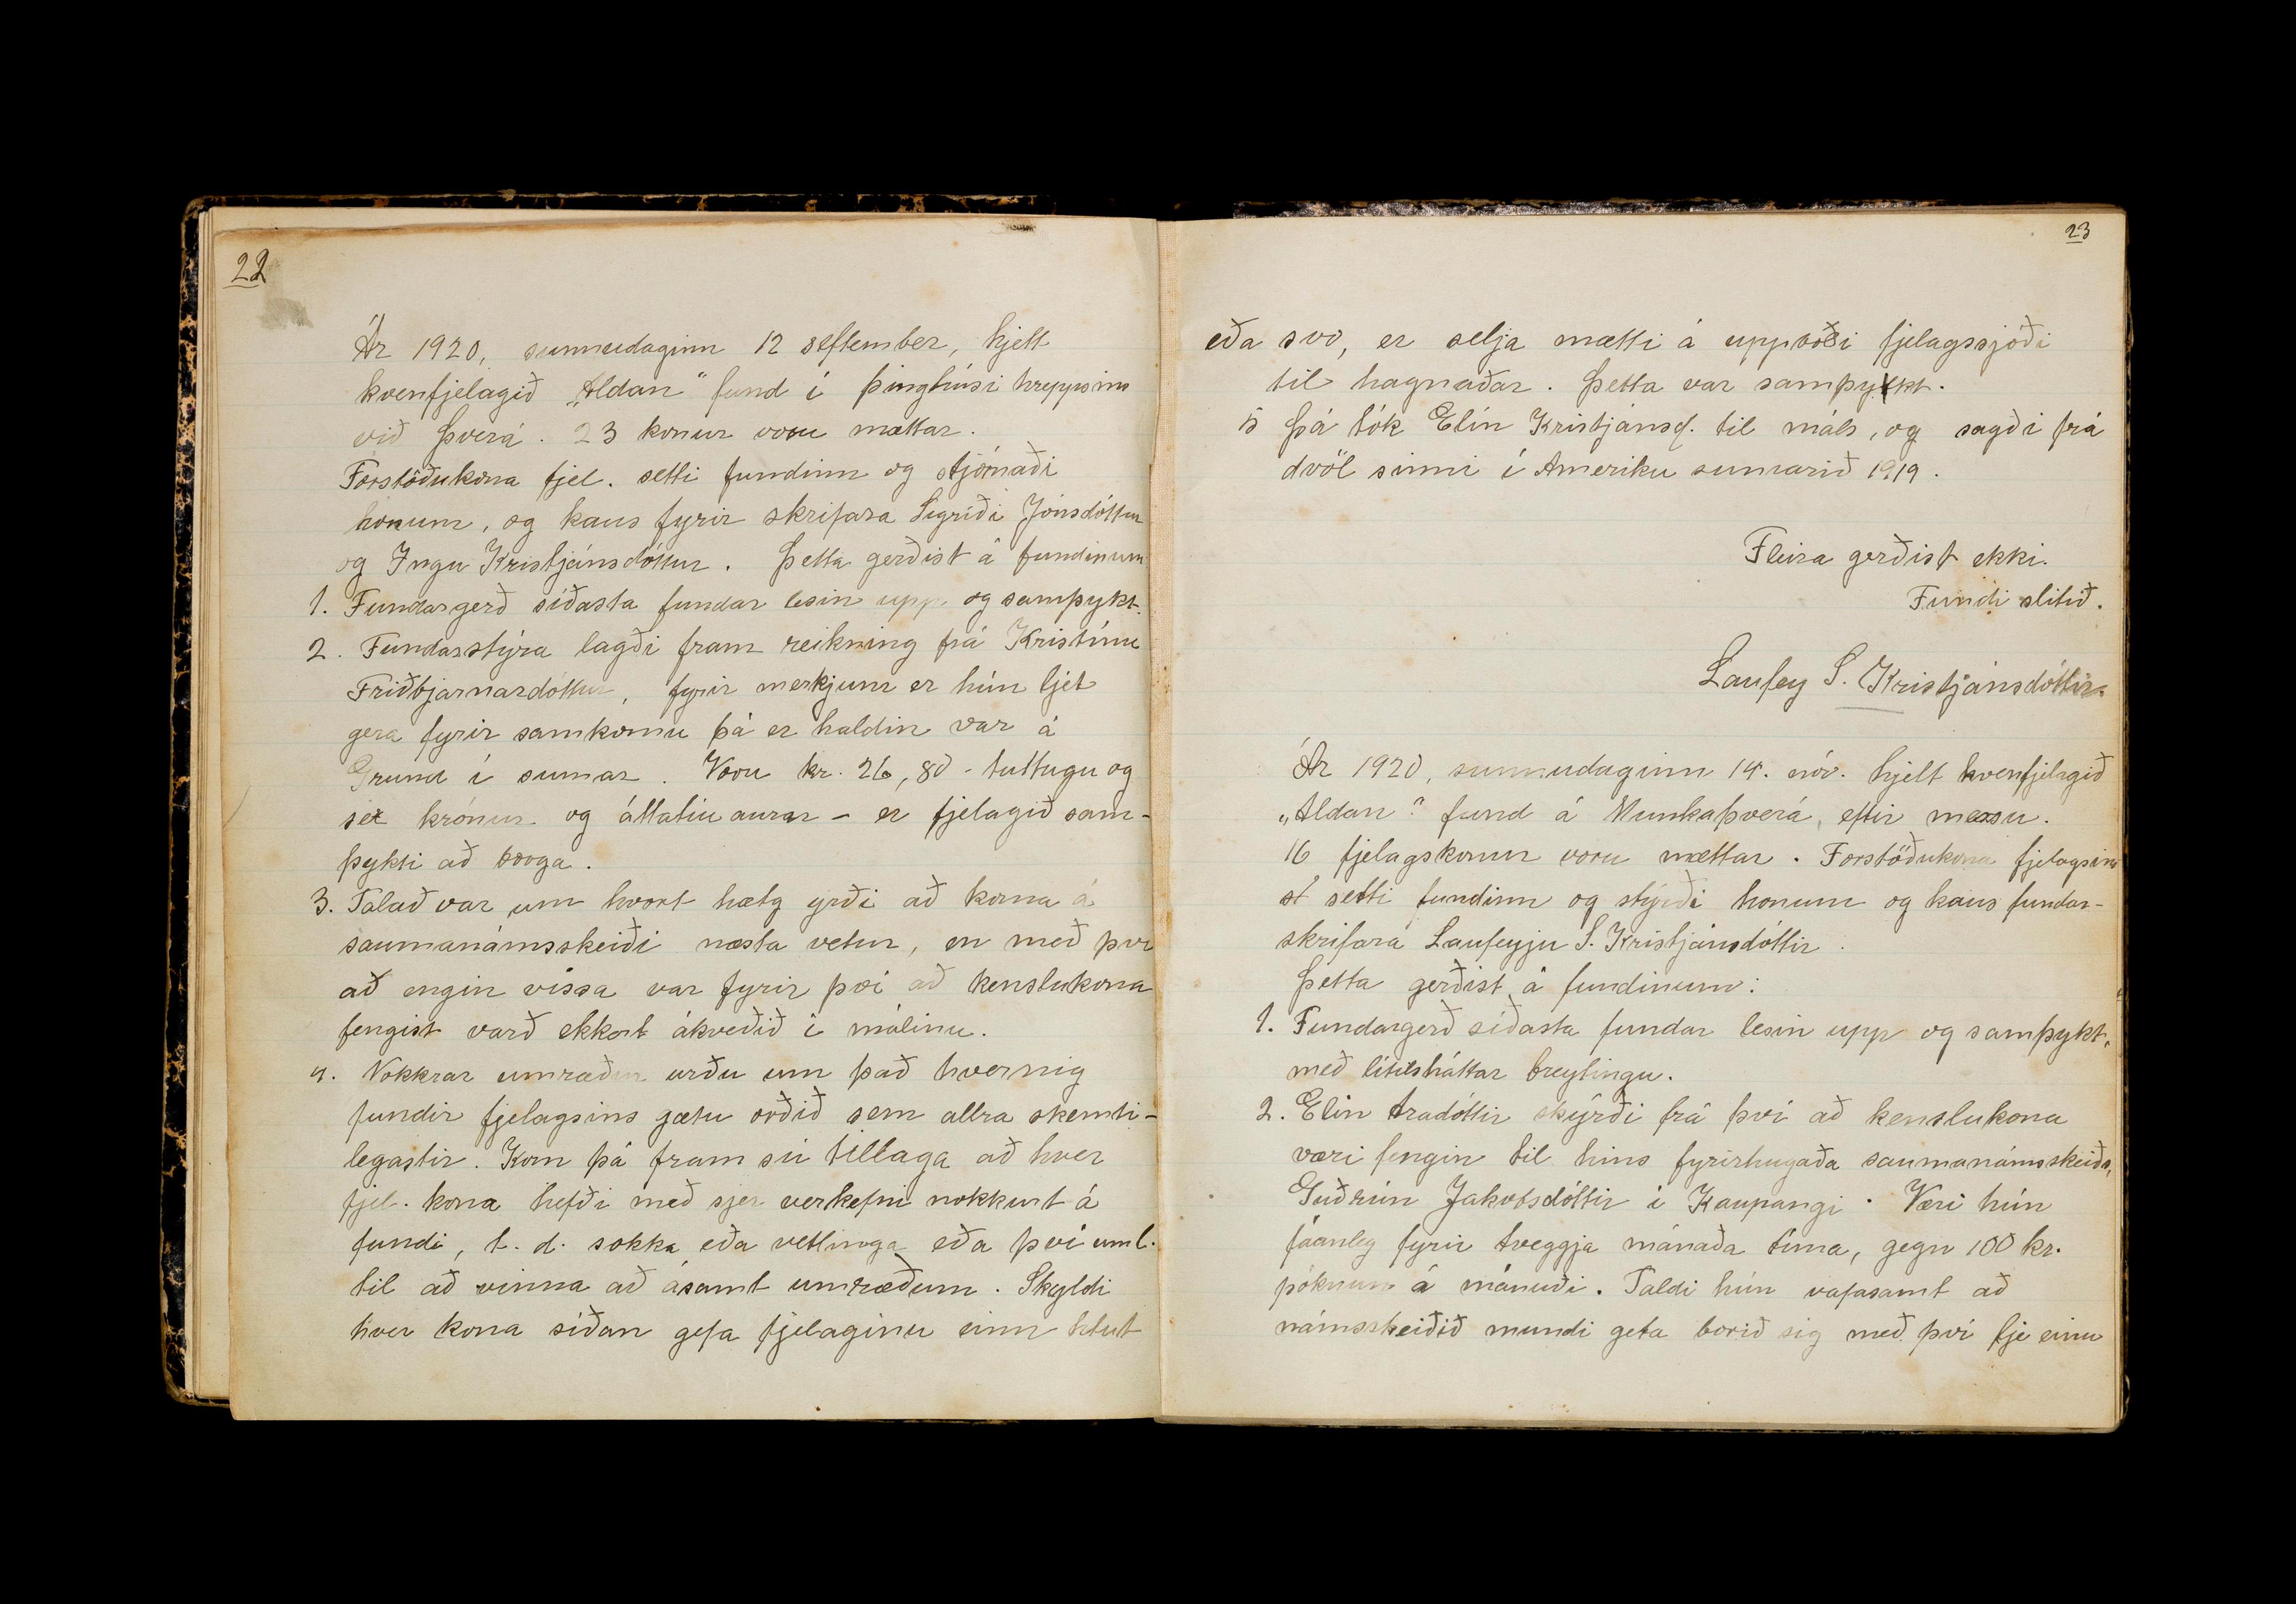 22
Ár 1920, sunnudaginn 12 september, hjelt
kvenfjelagið „Aldan" fund í þinghúsi hreppsins
við Þverá. 23 konur voru mættar.
Forstöðukona fjel. setti fundinn og stjórnaði
honum, og kaus fyrir skrifara Sigríði Jónsdóttur
og Ingu Kristjánsdóttur. Þetta gerðist á fundinum
1. Fundargerð síðasta fundar lesin upp og samþykt.
2. Fundarstýra lagði fram reikning frá Kristínu
Friðbjarnardóttur, fyrir merkjum er hún ljet
gera fyrir samkomu þá er haldin var á
Grund í sumar. Voru kr. 26,80 - tuttugu og
sex krónur og áttatíu aurar - er fjelagið sam-
þykti að borga.
3. Talað var um hvort hætg yrði að koma á
saumanámsskeiði næsta vetur, en með því
að engin vissa var fyrir því að kenslukona
fengist varð ekkert ákveðið í málinu.
4. Nokkrar umræður urðu um það hvernig
fundir fjelagsins gætu orðið sem allra skemti-
legastir. Kom þá fram sú tillaga að hver
fjel. kona hefði með sjer verkefni nokkurt á
fundi, t. d. sokka eða vetlinga eða því uml.
til að vinna að ásamt umræðum. Skyldi
hver kona síðan gefa fjelaginu einn hlut
23
eða svo, er selja mætti á uppboði fjelagssjóði
til hagnaðar. Þetta var samþykkt.
5 Þá tók Elín Kristjánsd. til máls, og sagði frá
dvöl sinni í Ameriku sumarið 1919.
Fleira gerðist ekki.
Fundi slitið.
Laufey S. Kristjánsdóttir.
Ár 1920, sunnudaginn 14. nóv. hjelt kvenfjelagið
„Aldan" fund á Munkaþverá, eftir messu.
16 fjelagskonur voru mættar. Forstöðukona fjelagsins
st setti fundinn og stýrði honum og kaus fundar-
skrifara Laufeyju S. Kristjánsdóttir.
Þetta gerðist á fundinum:
1. Fundargerð síðasta fundar lesin upp og samþykt,
með lítilsháttar breytingu.
2. Elín Aradóttir skýrði frá því að kenslukona
væri fengin til hins fyrirhugaða saumanámsskeiðs,
Guðrún Jakobsdóttir í Kaupangi. Væri hún
fáanleg fyrir tveggja mánaða tíma, gegn 100 kr.
þóknun á mánuði. Taldi hún vafasamt að
námsskeiðið mundi geta borið sig með því fje einu